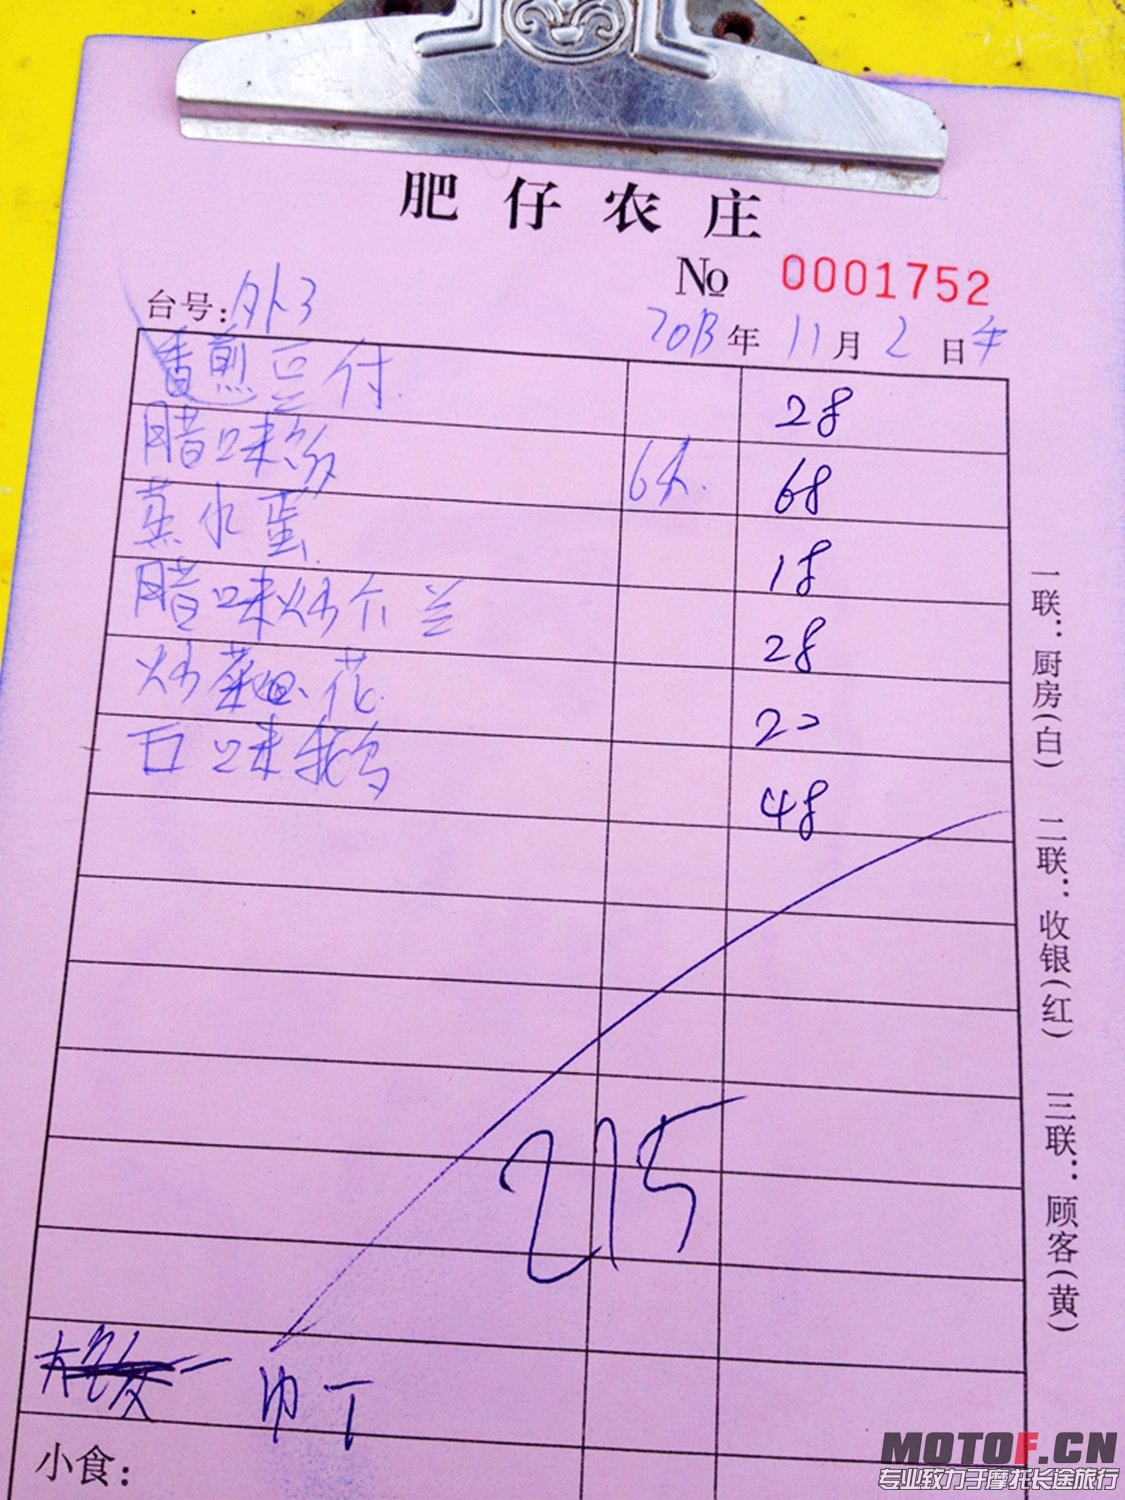 肥仔农庄
No 0001752
台号:外3
2013年11月2日午
香煎豆付 28
腊味饭 6人. 68
蒸水蛋 18
腊味炒介兰 28
炒菜花 20
口味鹅 48
215
巾丁
小食:
一联:厨房(白) 二联:收银(红) 三联:顾客(黄)
MOTOF.CN
专业致力于摩托长途旅行